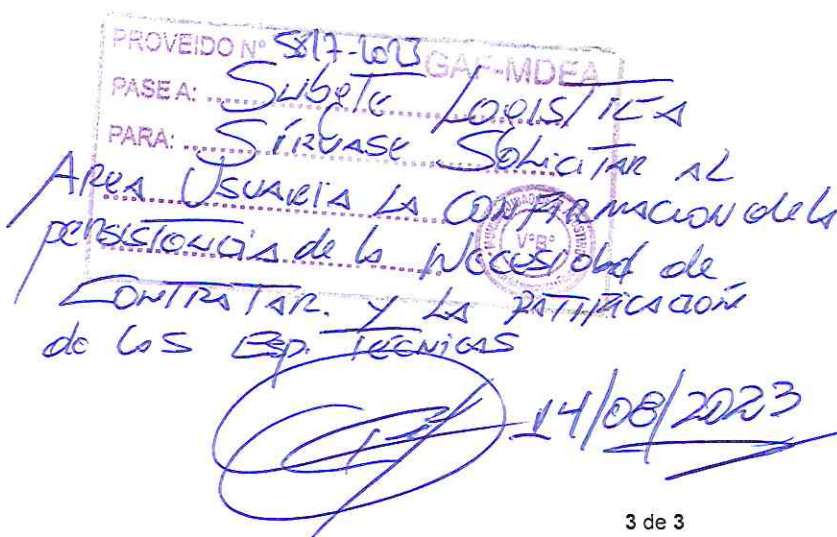 PROVEIDO N° 5817-2023 GAF-MDEA
PASE A: Subgte Logistica
PARA: Sírvase Solicitar al
Area Usuaria la Confirmacion de la
persistencia de la Necesidad de
Contratar. y la Ratificación
de las Esp. Tecnicas
V°B°
14/08/2023
3 de 3